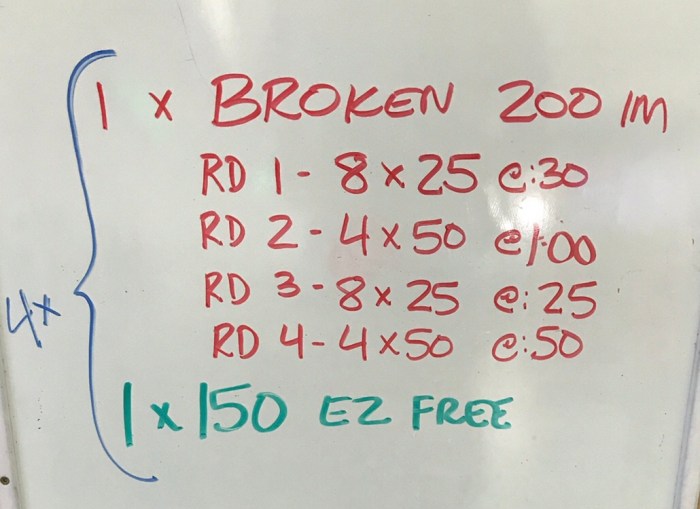 1 x BROKEN 200 IM
RD 1 - 8 x 25 @ :30
RD 2 - 4 x 50 @ 1:00
RD 3 - 8 x 25 @ :25
4x
RD 4 - 4 x 50 @ :50
1 x 150 EZ FREE